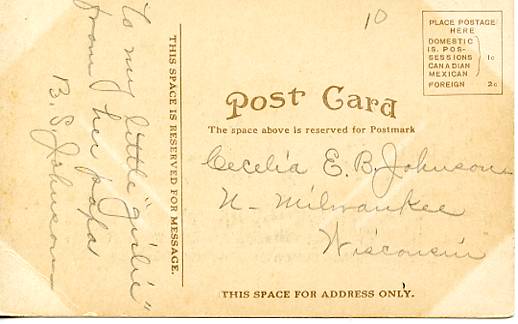 To my little "girlie"
from her papa
B. S. Johnson
THIS SPACE IS RESERVED FOR MESSAGE.
10
PLACE POSTAGE
HERE
DOMESTIC
IS. POS-
SESSIONS 1c
CANADIAN
MEXICAN
FOREIGN 2c
Post Card
The space above is reserved for Postmark
Cecelia E. B. Johnson
N - Milwaukee
Wisconsin
THIS SPACE FOR ADDRESS ONLY.